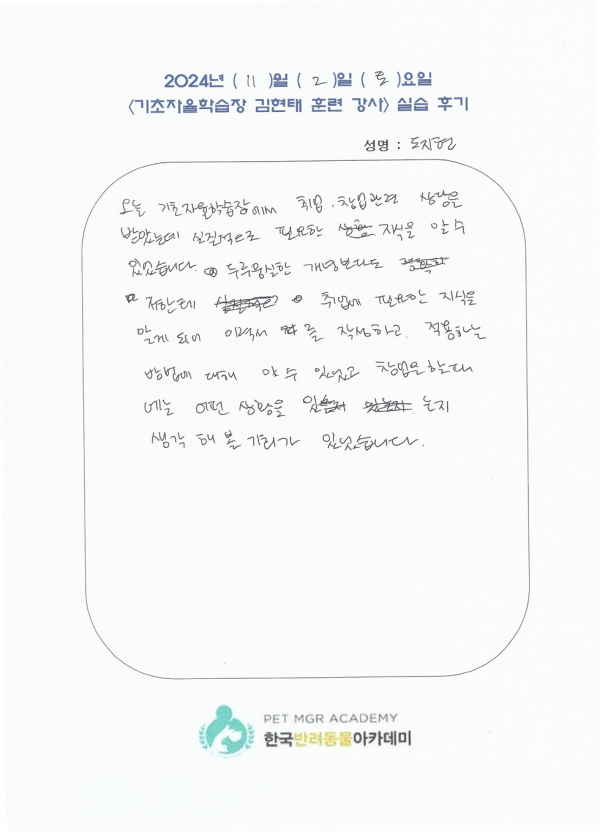 2024년 ( 11 )월 ( 2 )일 ( 토 )요일
<기초자율학습장 김현태 훈련 강사> 실습 후기
성명 : 도지현
오늘 기초자율학습장에서 취업, 창업관련 상담을
받았는데 실질적으로 필요한 지식을 알 수
있었습니다. 두루뭉실한 개념보다도
저한테 취업에 필요한 지식을
알게 되어 이력서 를 작성하고. 적용하는
방법에 대해 알 수 있었고 창업을 할때
에는 어떤 상황을 는지
생각 해 볼 기회가 있었습니다.
PET MGR ACADEMY
한국반려동물아카데미